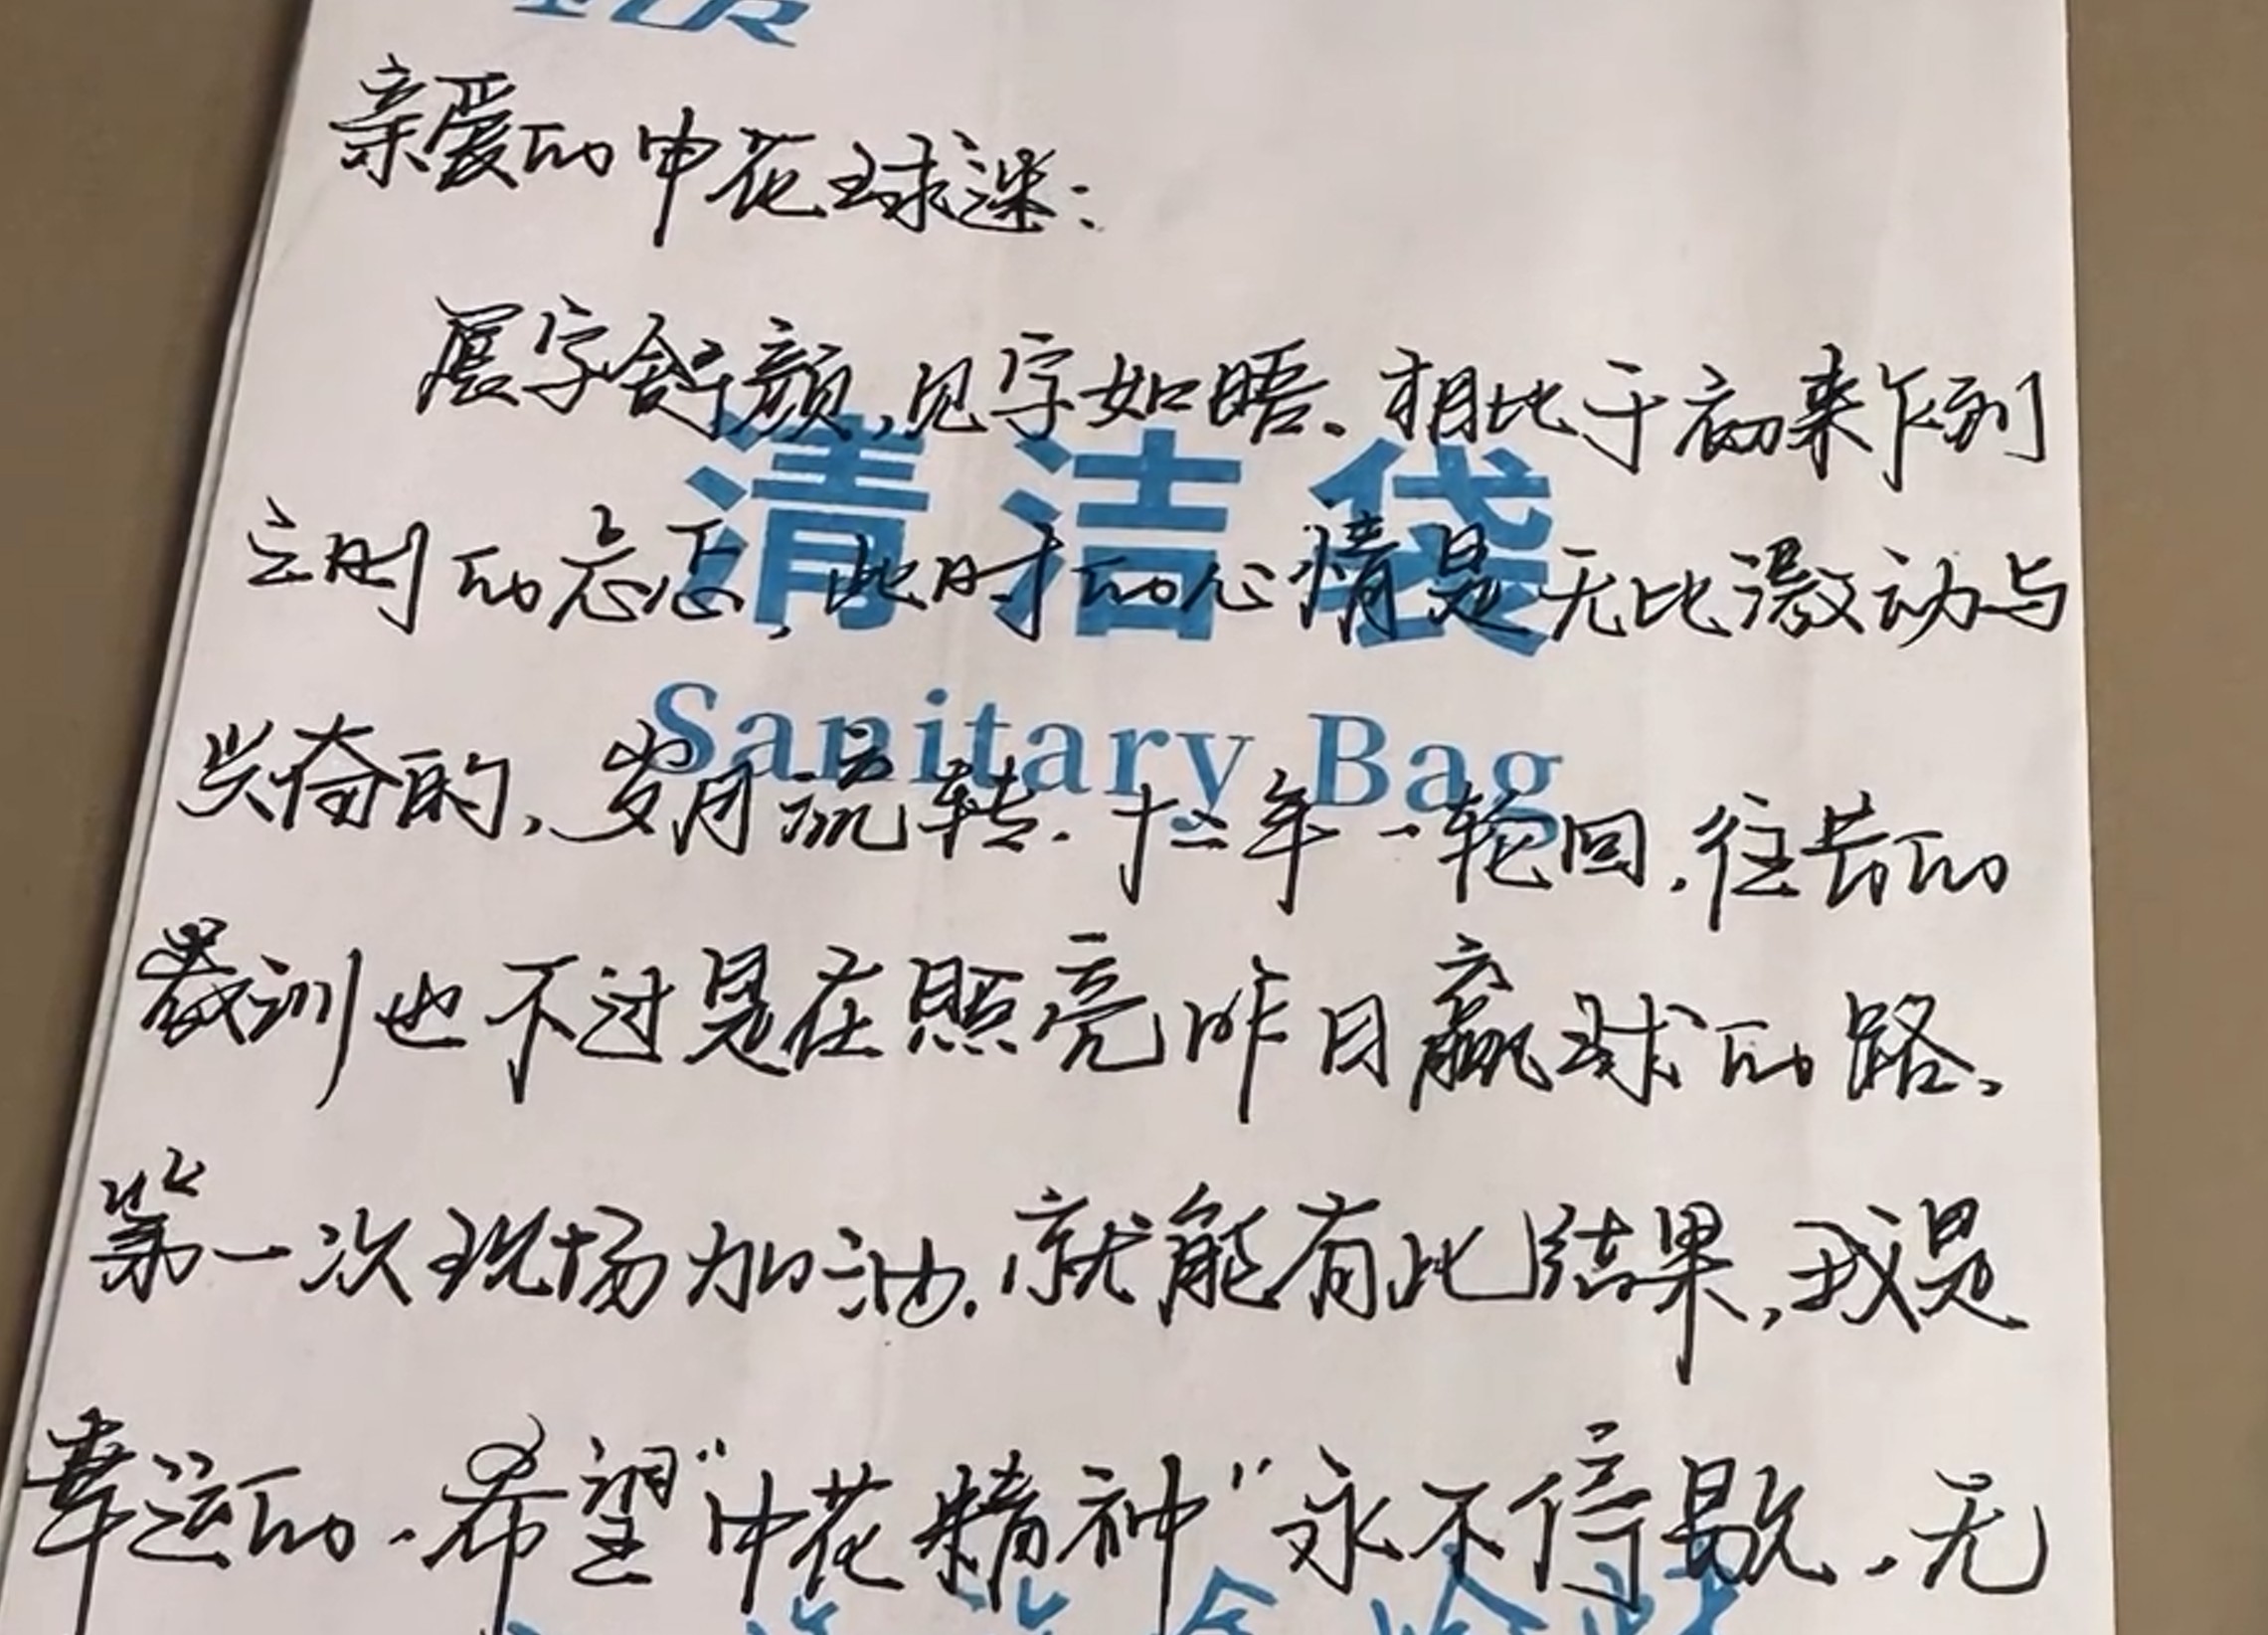 亲爱的申花球迷：
展字舒颜，见字如晤。相比于初来乍到
之时的忐忑，此时的心情是无比激动与
清洁袋
兴奋的，岁月流转，十二年一轮回，往昔的
Sanitary Bag
教训也不过是在照亮昨日赢球的路。
第一次现场加油，就能有此结果，我是
幸运的，希望“申花精神”永不停歇，无